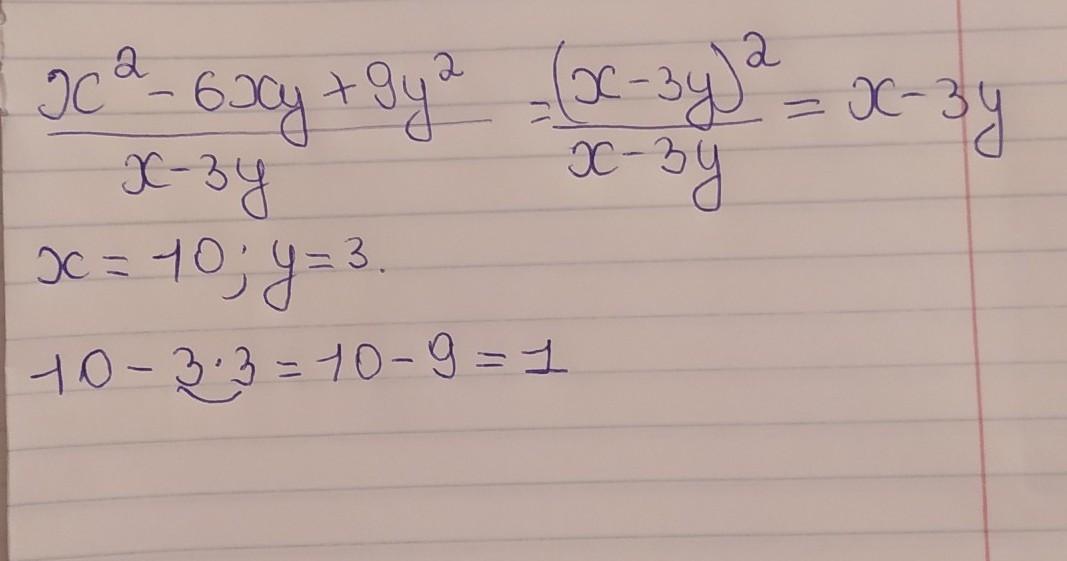 (x² - 6xy + 9y²)/(x - 3y) = (x - 3y)²/(x - 3y) = x - 3y
x = 10; y = 3.
10 - 3·3 = 10 - 9 = 1